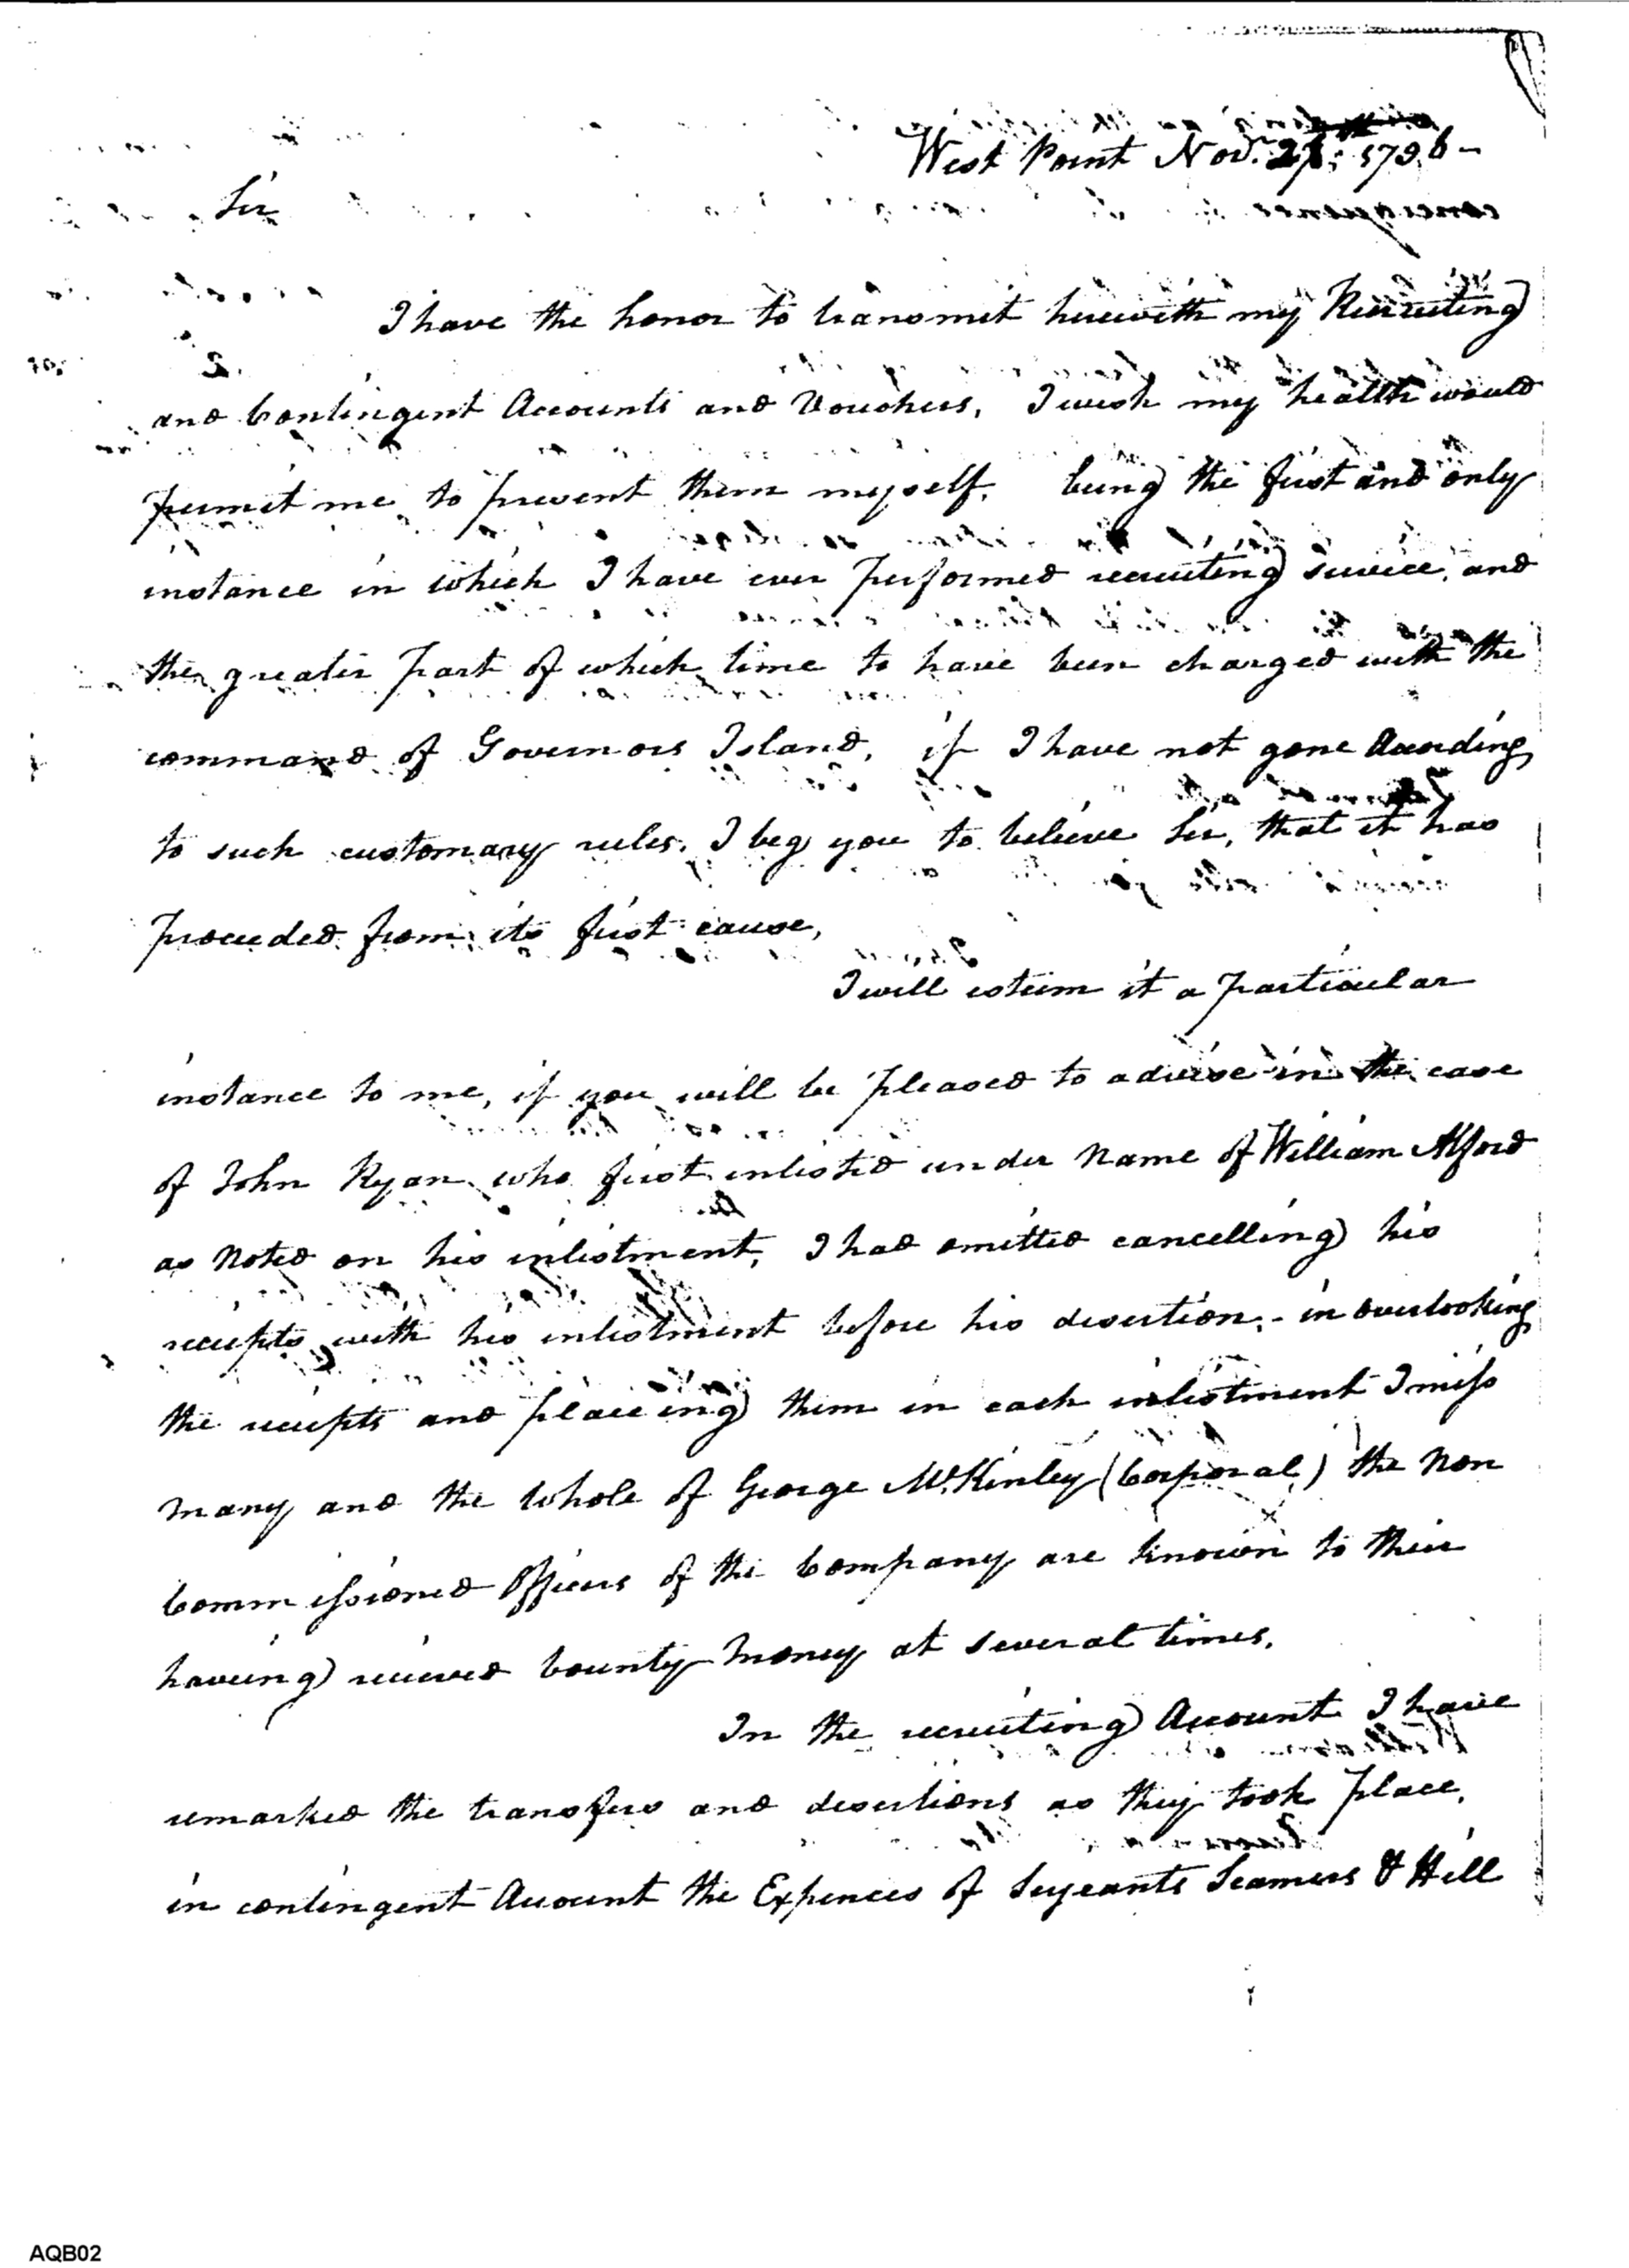 West Point Nov.r 1796-
Sir
I have the honor to transmit herewith my Recruiting
and Contingent Accounts and Vouchers, I wish my health would
permit me to present them myself. being the first and only
instance in which I have ever performed recruiting service, and
the greater part of which time to have been charged with the
command of Governors Island, if I have not gone According
to such customary rules. I beg you to believe Sir, that it has
proceeded from its first cause,
I will esteem it a particular
instance to me, if you will be pleased to advise in the case
of John Ryan who first inlisted under Name of William Alford
as Noted on his inlistment, I had omitted cancelling his
reciepts with his inlistment before his desertion,- in overlooking
the reciepts and placeing them in each inlistment I miss
many and the whole of George McKinley (Corporal) the Non
Commissioned Officers of the Company are known to their
haveing recieved bounty Money at several times.
In the recruiting Account I have
remarked the transfers and desertions as they took place,
in contingent Account the Expences of Sergeants Seamers & Hill
AQB02